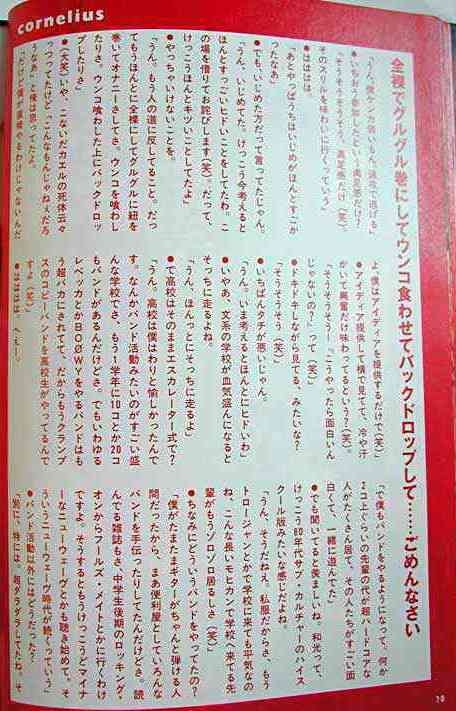 cornelius
全裸でグルグル巻にしてウンコ食わせてバックドロップして……ごめんなさい
「うん。僕ケンカ弱いもん。速攻で逃げる」
●いちおう参加したという満足感だけ？
「そうそうそうそう。高笑感だけ（笑）。
そのスリルを味わいに行くっていう」
●はははは。
「あとやっぱうちはいじめがほんとすごか
ったなあ」
●でも、いじめた方だって言ってたじゃん。
「うん。いじめてた。けっこう今考えると
ほんとすっごいヒドいことをしてたわ。こ
の場を借りてお詫びします（笑）。だって、
けっこうほんとキツいことしてたよ」
●やっちゃいけないことを。
「うん。もう人の道に反してること。だっ
てもうほんとに全裸にしてグルグルに紐を
巻いてオナニーさしてさ。ウンコを喰わし
たりさ。ウンコ喰わした上にバックドロッ
プしたりさ」
●（大笑）いや、こないだカエルの死体云々
っつってたけど「こんなもんじゃねえだろ
うなあ」と俺は思ってたよ。
「だけど僕が直接やるわけじゃないんだ
よ、僕はアイディアを提供するだけで（笑）」
●アイディア提供して横で見てて、冷や汗
かいて興奮だけ味わってるという？（笑）。
「そうそうそう！『こうやったら面白いん
じゃないの？』って（笑）」
●ドキドキしながら見てる、みたいな？
「そうそうそう（笑）」
●いちばんタチが悪いじゃん。
「うん。いま考えるとほんとにヒドいわ」
●いやあ、文系の学校が血気盛んになると
そっちに走るよね。
「うん、ほんっとにそっちに走るよ」
●で高校はそのままエスカレーター式で？
「うん。高校は僕はわりと愉しかったんで
す。なんかバンド活動みたいのがすごい盛
んな学校でさ、もう１学年に10コとか20コ
もバンドがあるんだけどさ。でもいわゆる
レベッカとかBOØWYをやるバンドはも
う超バカにされてて、だからもうクランプ
スのコピーバンドを高校生がやってるんで
すよ（笑）」
●はははは、へぇー。
「で僕もバンドをやるようになって、何か
２コ上ぐらいの先輩の代が超ハードコアな
人がたくさん居て、その人たちがすごい面
白くて、一緒に遊んでた」
●でも聞いてると羨ましいね、和光って、
けっこう80年代サブ・カルチャーのハイス
クール版みたいな感じだよね。
「うん、そうだねえ、私服だからさ、もう
トロージャンとかで学校に来ても平気なの
ね。こんな長いモヒカンで学校へ来てる先
輩がもうゾロゾロ居るしさ（笑）」
●ちなみにどういうバンドをやってたの？
「僕がたまたまギターがちゃんと弾ける人
間だったから、まあ便利屋としていろんな
バンドを手伝ったりしてたんだけどさ。読
んでる雑誌もさ、中学生後期のロッキング・
オンからフールズ・メイトとかに行くわけ
ですよ。そうするともうけっこうどマイナ
ーなニューウェーヴとかも聴き始めて、そ
ういうニューウェーヴ時代が続くっていう」
●バンド活動以外にはどうだった？
「別に、特には。超ダラダラしてたね。そ